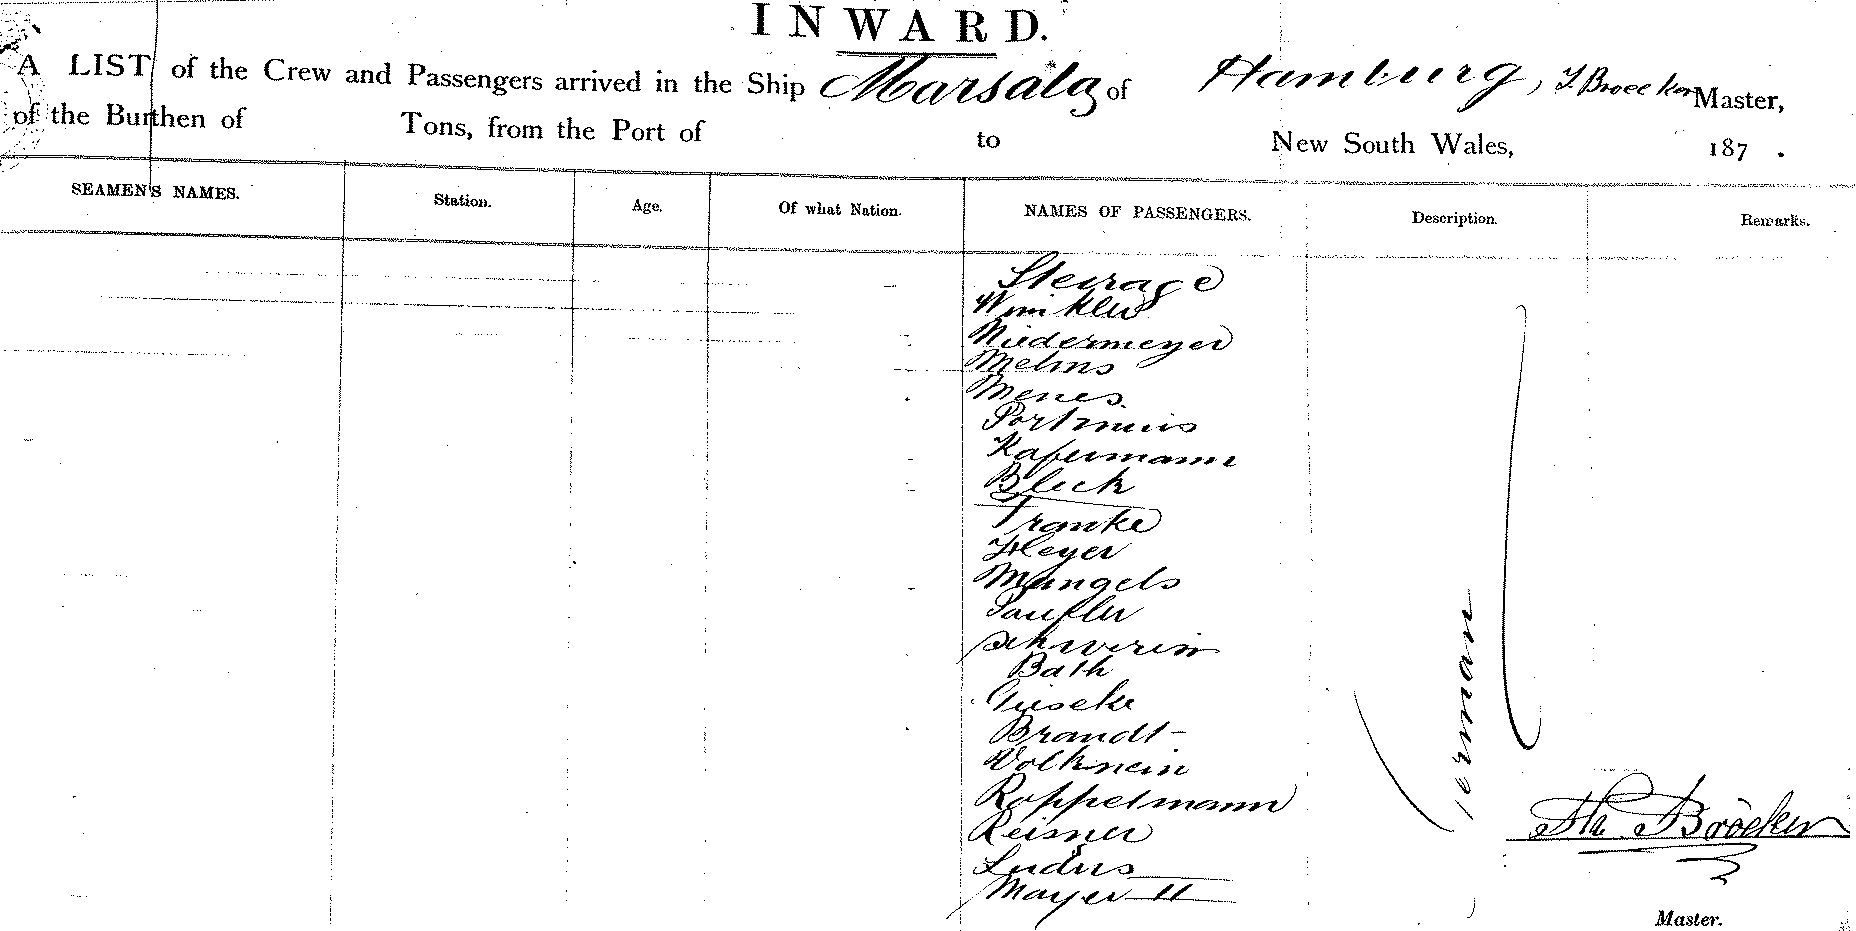 INWARD.
A LIST of the Crew and Passengers arrived in the Ship Marsala of Hamburg, T. Broecker Master,
of the Burthen of Tons, from the Port of to New South Wales, 187 .
SEAMEN'S NAMES. Station. Age. Of what Nation. NAMES OF PASSENGERS. Description. Remarks.
Steerage
Winkler
Niedermeyer
Melms
Menes
Portmuis
Kafermann
Bleck
Franke
Heyer
Mangels
Taufler
Schwerin
Bath
Gieseke
Brandt
Volknein
Roppelmann
Reisner
Luders
Mayer II
German
Th. Bröcker
Master.